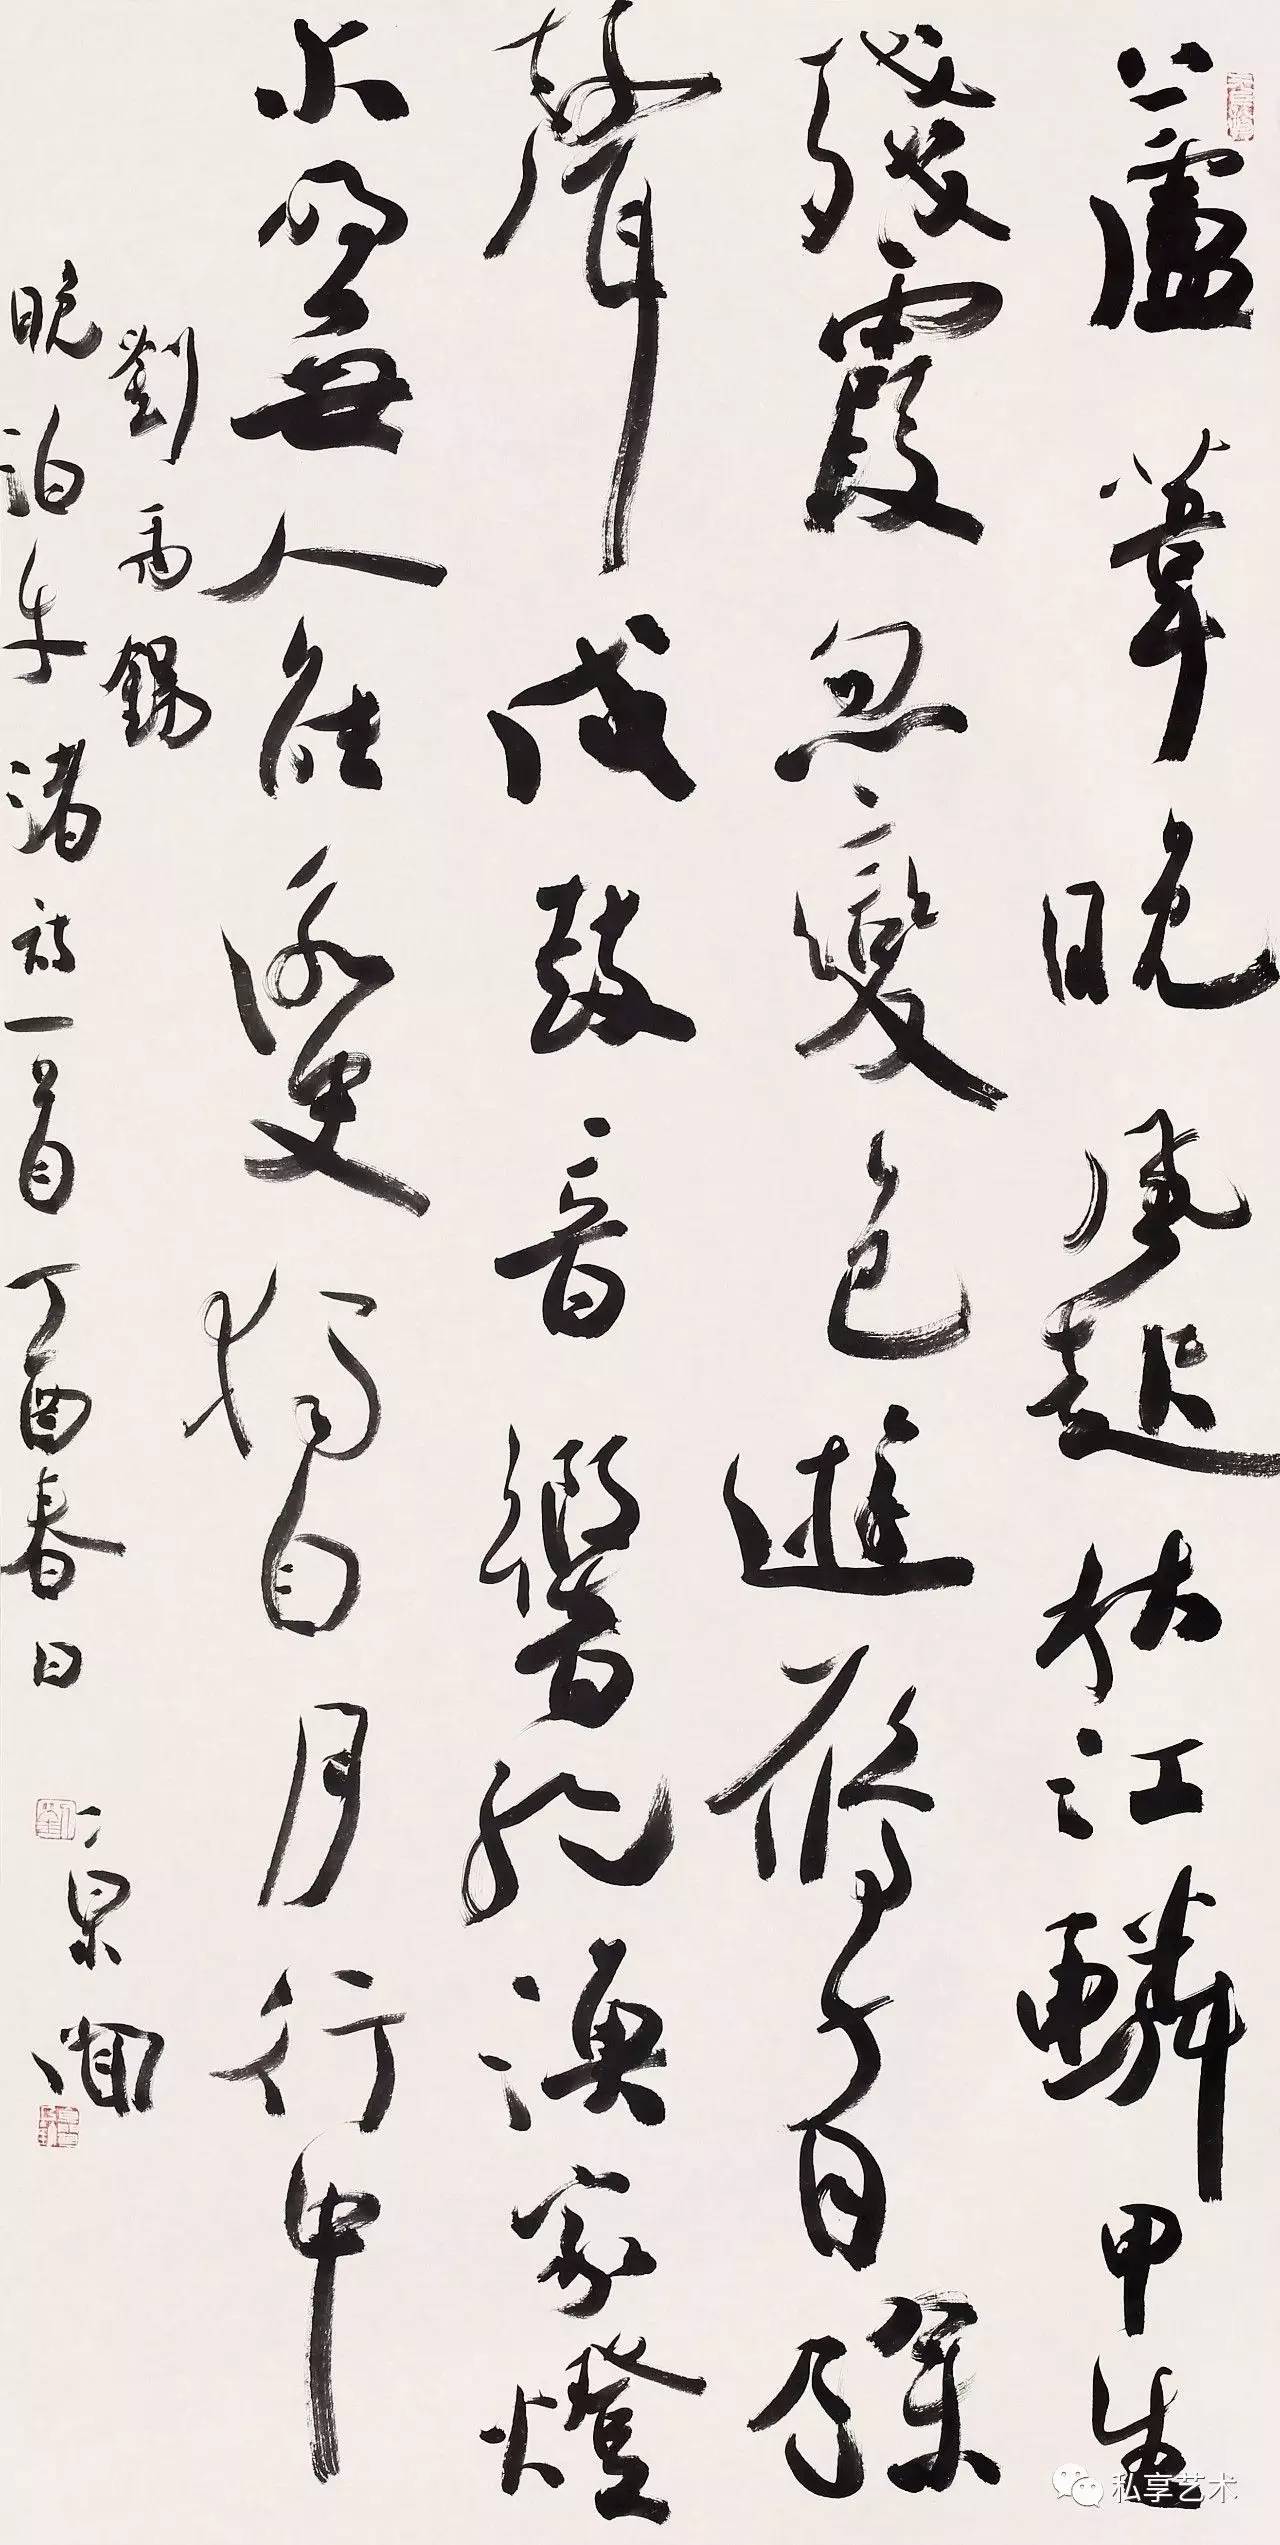 蘆葦晚風起秋江鱗甲生
殘霞忽變色遊雁有餘
聲戍鼓音響絶漁家燈
火明無人能詠史獨自月行中
劉禹錫
晚泊牛渚詩一首丁酉春日
私享艺术